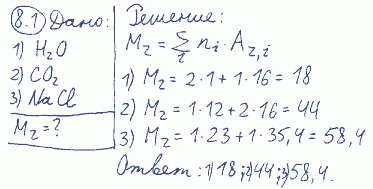 8.1 Дано:
1) H₂O
2) CO₂
3) NaCl
M₂ = ?
Решение:
M₂ = Σ nᵢ · A₂,ᵢ
i
1) M₂ = 2·1 + 1·16 = 18
2) M₂ = 1·12 + 2·16 = 44
3) M₂ = 1·23 + 1·35,4 = 58,4
Ответ: 1) 18; 2) 44; 3) 58,4.